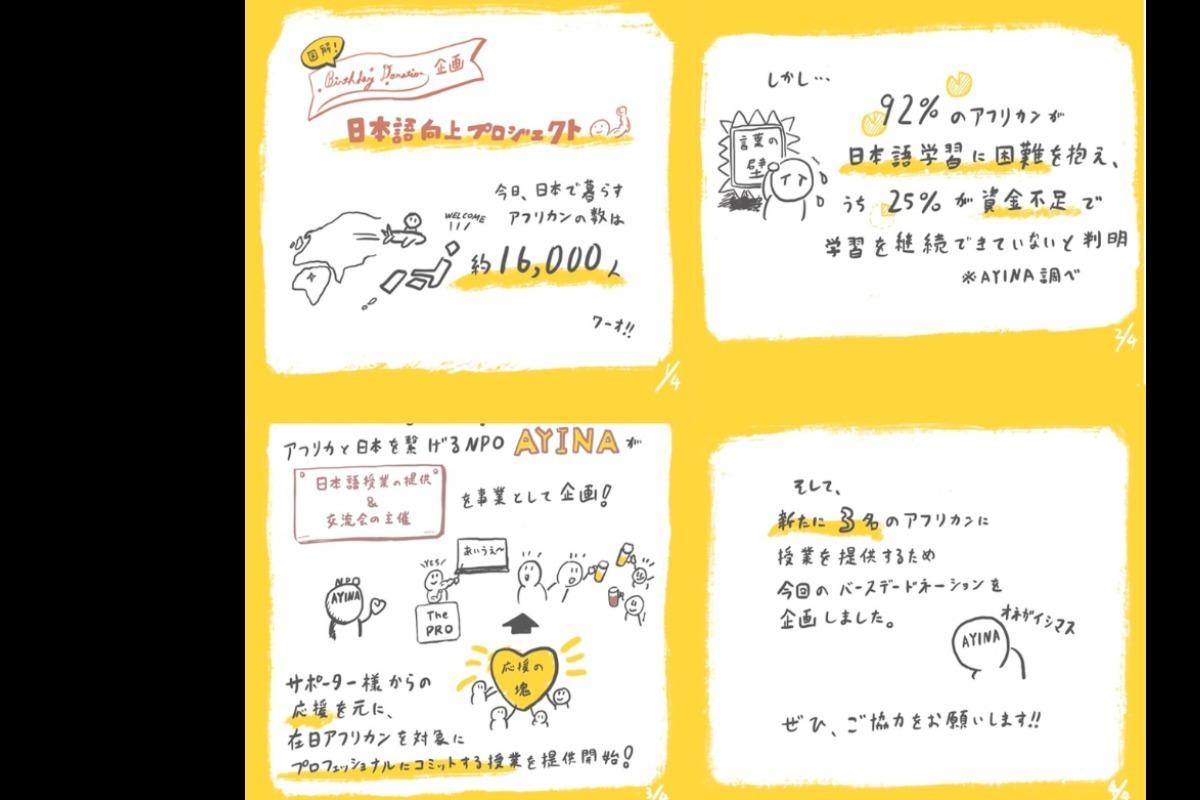 図解!
Birthday Donation 企画
日本語向上プロジェクト
今日、日本で暮らす
アフリカンの数は
WELCOME
約16,000人
ワーオ!!
1/4
しかし…
言葉の
壁
92%のアフリカンが
日本語学習に困難を抱え、
うち 25%が資金不足で
学習を継続できていないと判明
※AYINA調べ
2/4
アフリカと日本を繋げるNPO AYINAが
日本語授業の提供
&
交流会の主催
を事業として企画!
あいうえ〜
YES!
NPO
AYINA
The
PRO
応援の
塊
サポーター様からの
応援を元に、
在日アフリカンを対象に
プロフェッショナルにコミットする授業を提供開始!
3/4
そして、
新たに3名のアフリカンに
授業を提供するため
今回のバースデードネーションを
企画しました。
オネガイシマス
AYINA
ぜひ、ご協力をお願いします!!